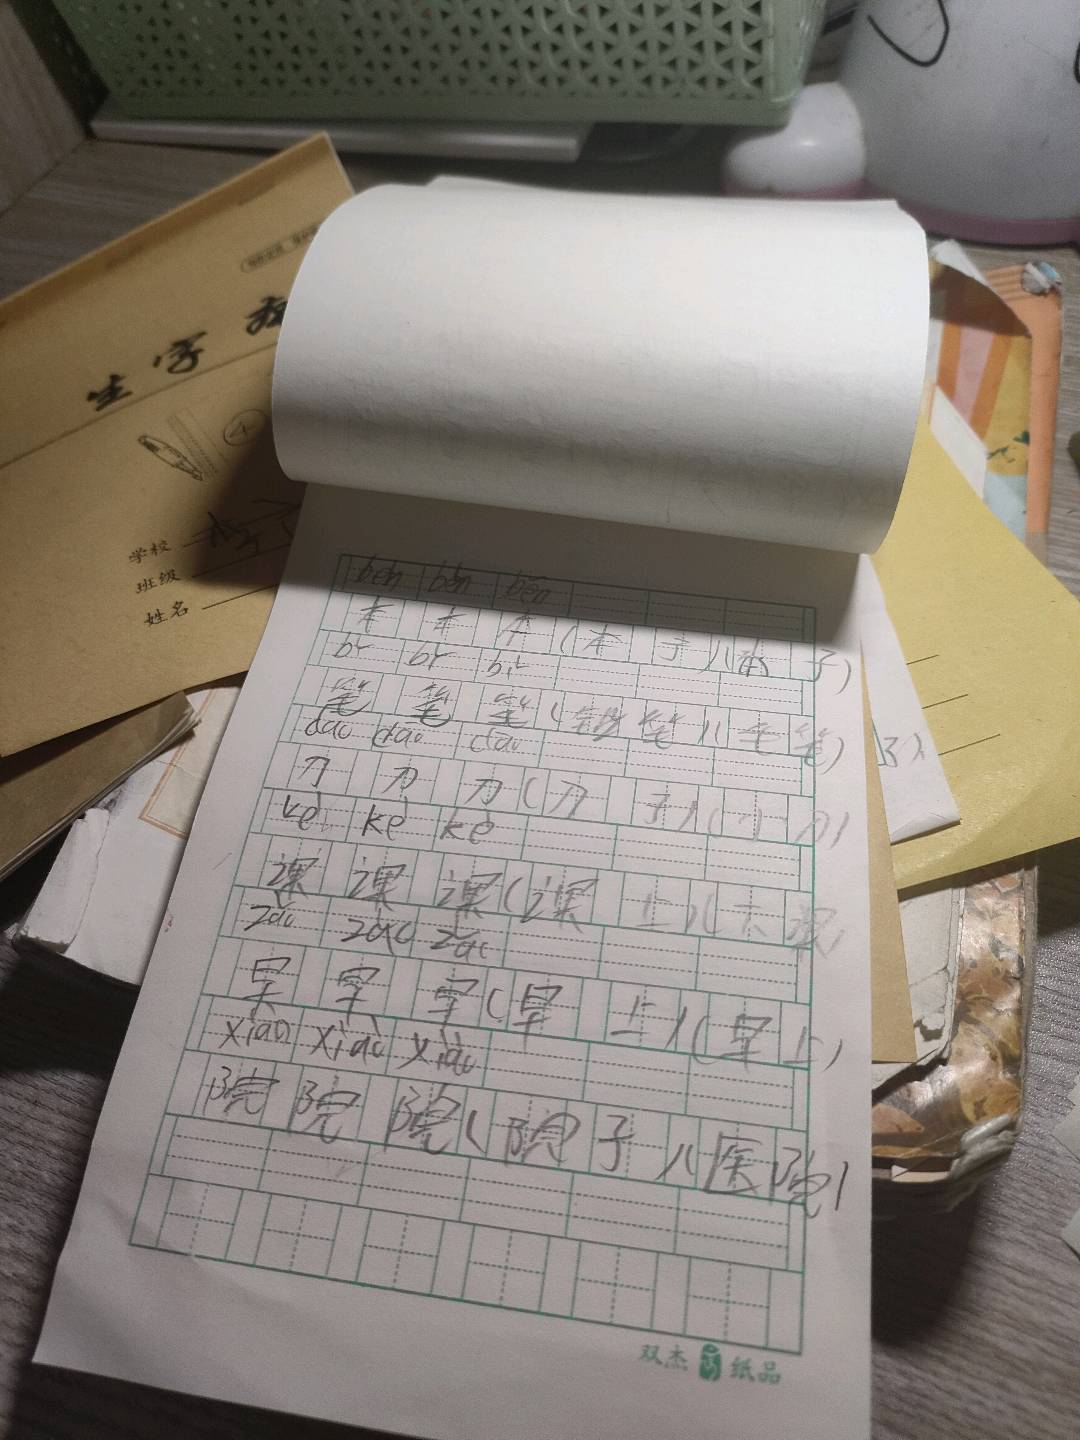 生字
学校
班级
姓名
běn běn běn
本 本 本 (本 子)(本 子)
bǐ bǐ bǐ
笔 笔 笔 (铅 笔)(毛 笔)
dāo dāo dāo
刀 刀 刀 (刀 子)(小 刀)
kè kè kè
课 课 课 (课 上)(大 课)
zǎo zǎo zǎo
早 早 早 (早 上)(早 上)
xiào xiào xiào
院 院 院 (院 子)(医 院)
双杰 纸品